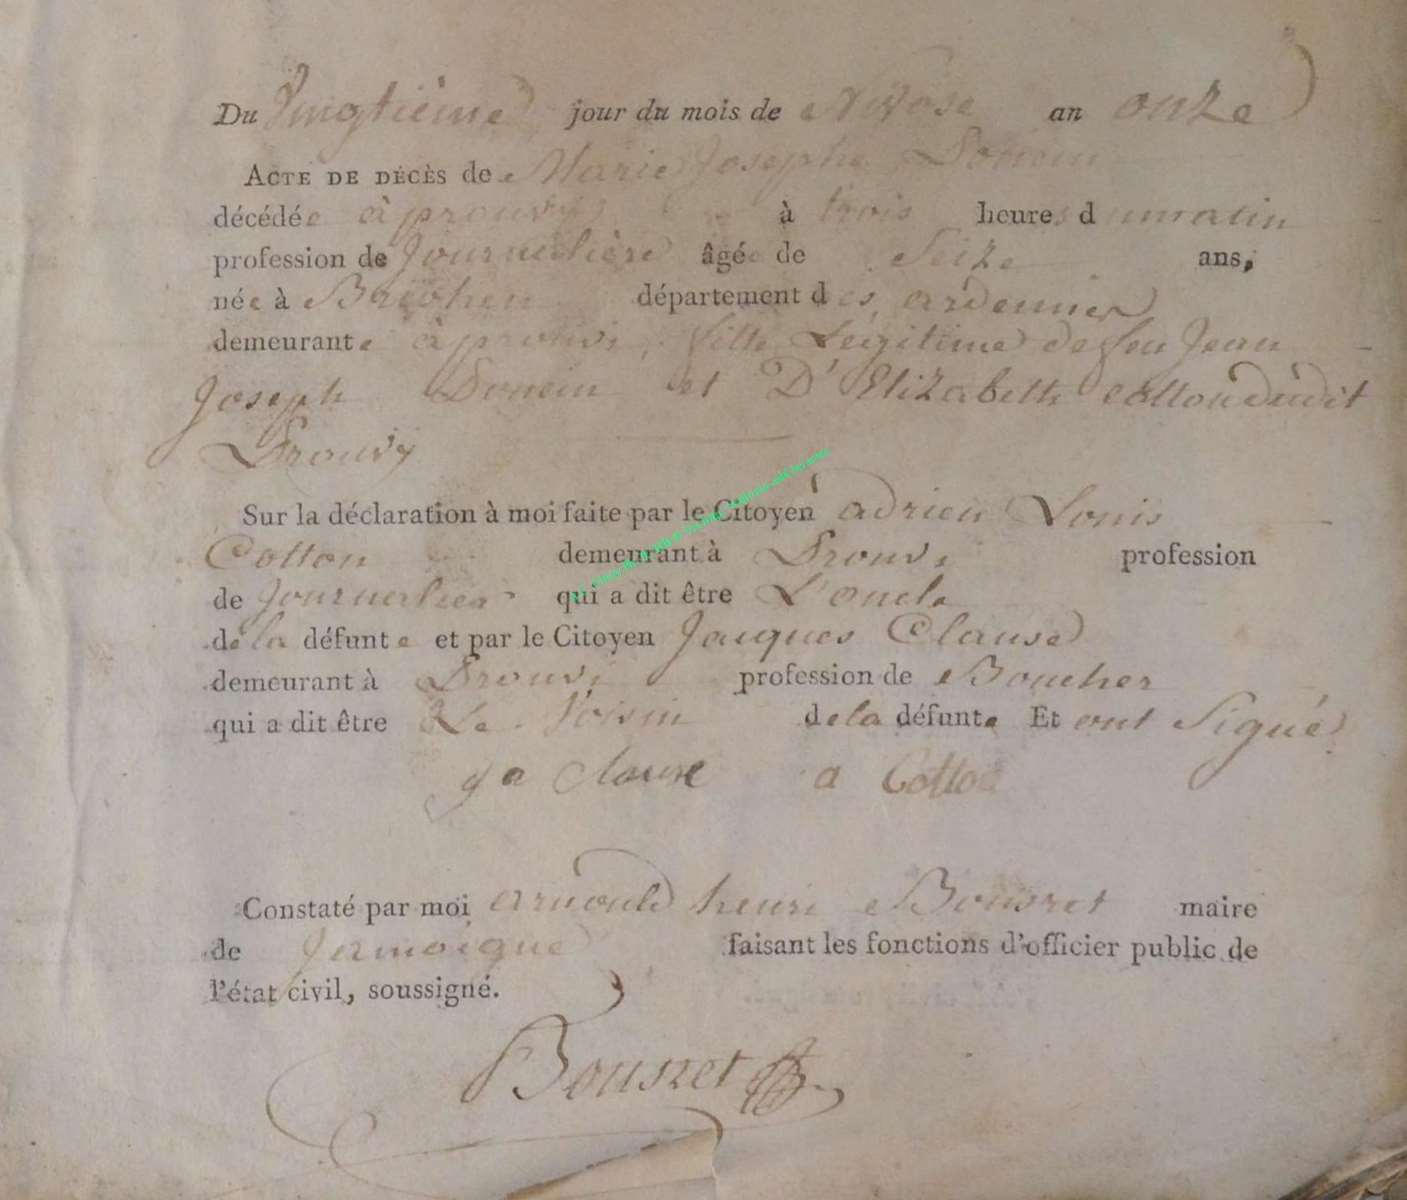 Du Vingtième jour du mois de Nivose an onze
ACTE DE DÉCÈS de Marie Josephe
décédée à prouvy à trois heures du matin
profession de Journalière âgée de Seize ans,
née à département des ardennes
demeurante à prouvi, fille Legitime de feu Jean
Joseph et D'Elizabeth cotton dudit
Prouvy
Sur la déclaration à moi faite par le Citoyen adrien Louis
Cotton demeurant à Prouvi profession
de Journalier qui a dit être L'oncle
de la défunte et par le Citoyen Jacques Clause
demeurant à Prouvi profession de Boucher
qui a dit être Le Voisin de la défunte Et ont Signé
Clause a Cotton
Constaté par moi arnould henri Bousret maire
de Jamoigne faisant les fonctions d'officier public de
l'état civil, soussigné.
Bousret